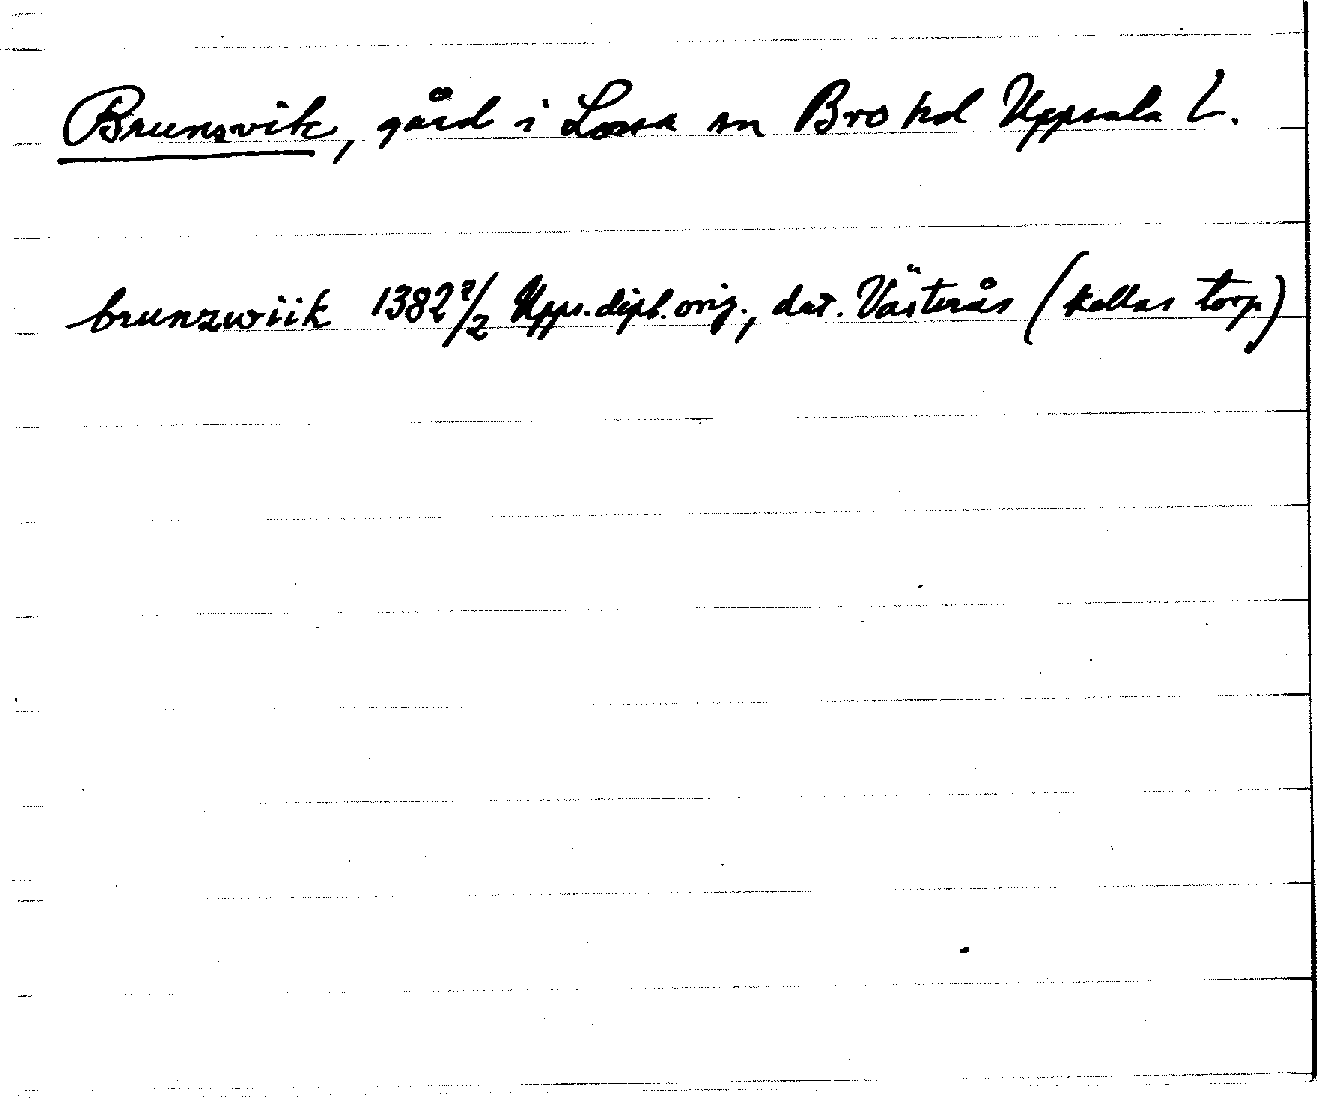 Brunsvik, gård i Lossa sn Bro hd Uppsala L.
brunzwiik 1382 2/2 Upps. dipl. orig., dat. Västerås (kallas torp)